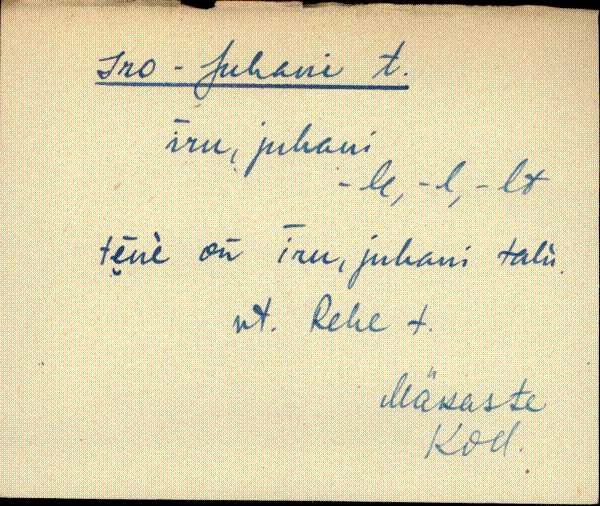 Iro-Juhani t.
īru, juhani
-le, -l, -lt
tēne on īru, juhani talu
vt. Rehe t.
Mäksaste
Kod.